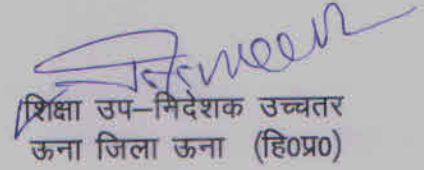 शिक्षा उप–निदेशक उच्चतर
ऊना जिला ऊना (हि०प्र०)